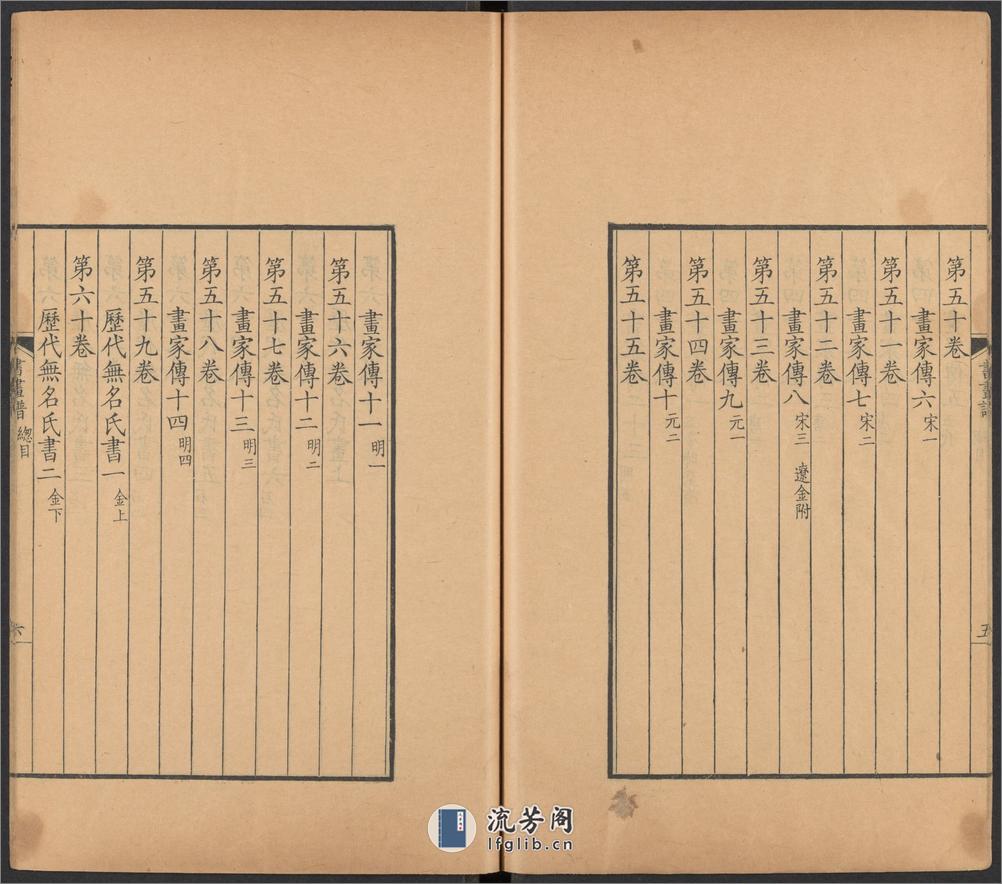 第五十卷
畫家傳六 宋一
第五十一卷
畫家傳七 宋二
第五十二卷
畫家傳八 宋三 遼金附
第五十三卷
畫家傳九 元一
第五十四卷
畫家傳十 元二
第五十五卷
畫家傳十一 明一
第五十六卷
畫家傳十二 明二
第五十七卷
畫家傳十三 明三
第五十八卷
畫家傳十四 明四
第五十九卷
歷代無名氏書一 金上
第六十卷
歷代無名氏書二 金下
書畫譜 總目
六
書畫譜
五
流芳阁
lfglib.cn